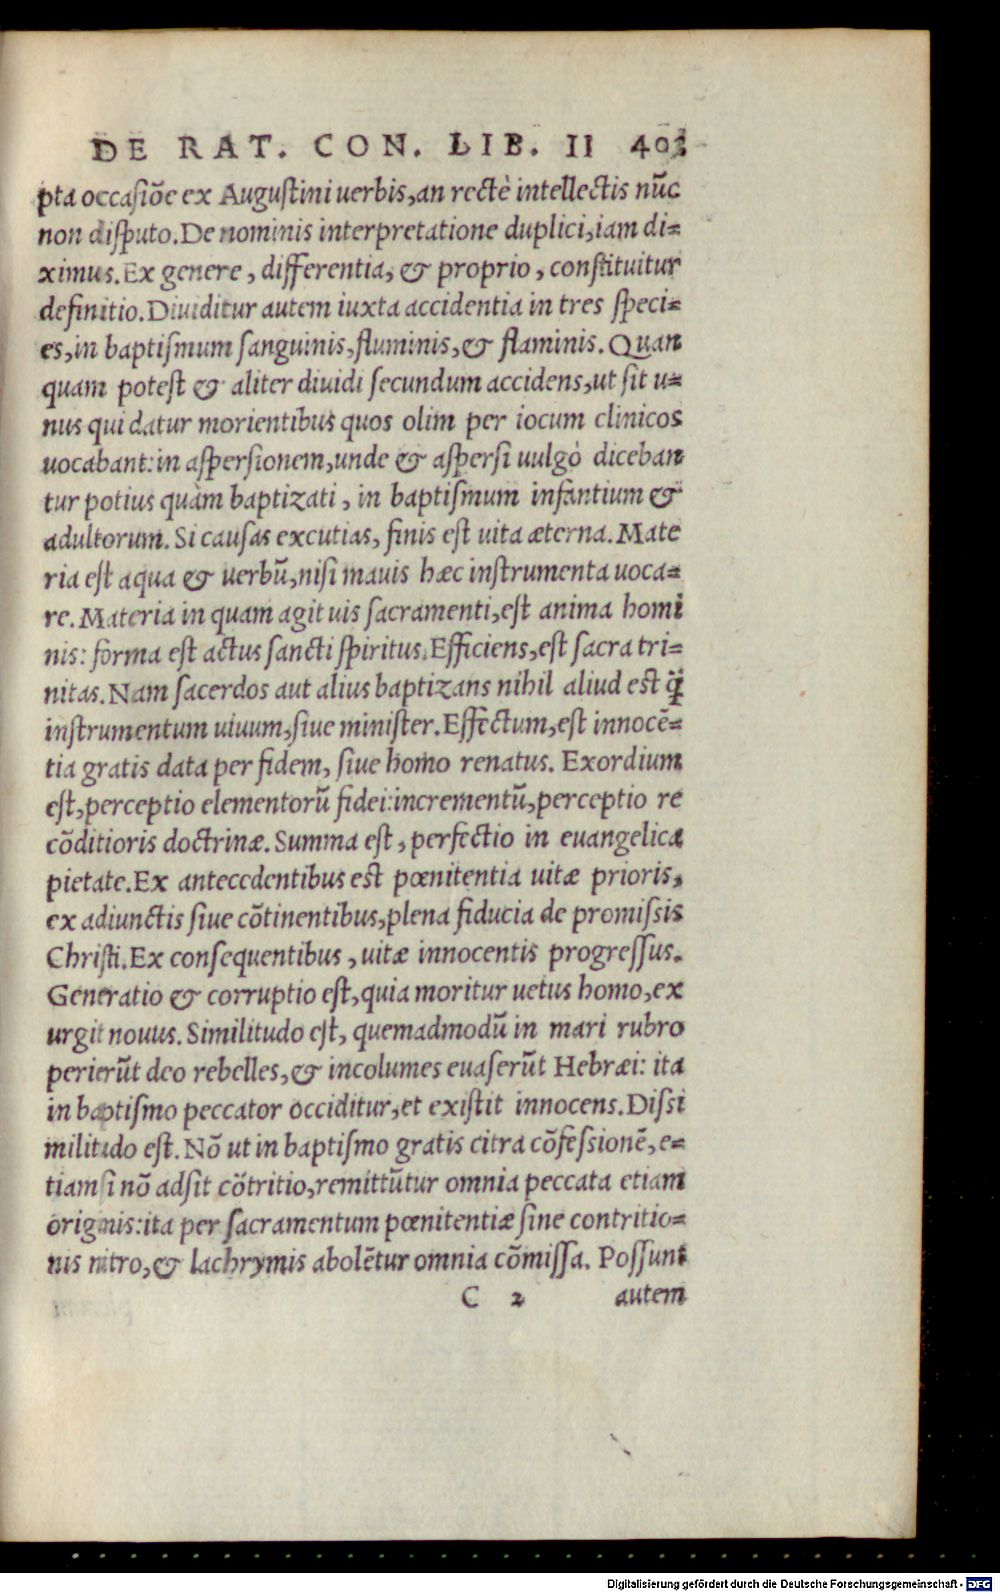 DE RAT. CON. LIB. II 403
pta occasiōe ex Augustini uerbis,an rectè intellectis nūc
non disputo.De nominis interpretatione duplici,iam di=
ximus.Ex genere, differentia, & proprio, constituitur
definitio.Diuiditur autem iuxta accidentia in tres speci=
es,in baptismum sanguinis,fluminis,& flaminis. Quan
quam potest & aliter diuidi secundum accidens,ut sit u=
nus qui datur morientibus quos olim per iocum clinicos
uocabant:in aspersionem,unde & aspersi uulgò diceban
tur potius quàm baptizati, in baptismum infantium &
adultorum. Si causas excutias, finis est uita æterna. Mate
ria est aqua & uerbū,nisi mauis hæc instrumenta uoca=
re. Materia in quam agit uis sacramenti,est anima homi
nis: forma est actus sancti spiritus.Efficiens,est sacra tri=
nitas. Nam sacerdos aut alius baptizans nihil aliud est q̄
instrumentum uiuum,siue minister.Effectum,est innocē=
tia gratis data per fidem, siue homo renatus. Exordium
est,perceptio elementorū fidei:incrementū,perceptio re
cōditioris doctrinæ. Summa est, perfectio in euangelica
pietate.Ex antecedentibus est pœnitentia uitæ prioris,
ex adiunctis siue cōtinentibus,plena fiducia de promissis
Christi.Ex consequentibus, uitæ innocentis progressus.
Generatio & corruptio est,quia moritur uetus homo,ex
urgit nouus. Similitudo est, quemadmodū in mari rubro
perierūt deo rebelles,& incolumes euaserūt Hebræi: ita
in baptismo peccator occiditur,et existit innocens.Dissi
militudo est. Nō ut in baptismo gratis citra cōfessionē,e=
tiamsi nō adsit cōtritio,remittūtur omnia peccata etiam
originis:ita per sacramentum pœnitentiæ sine contritio=
nis nitro,& lachrymis abolētur omnia cōmissa. Possunt
C 2 autem
Digitalisierung gefördert durch die Deutsche Forschungsgemeinschaft - DFG